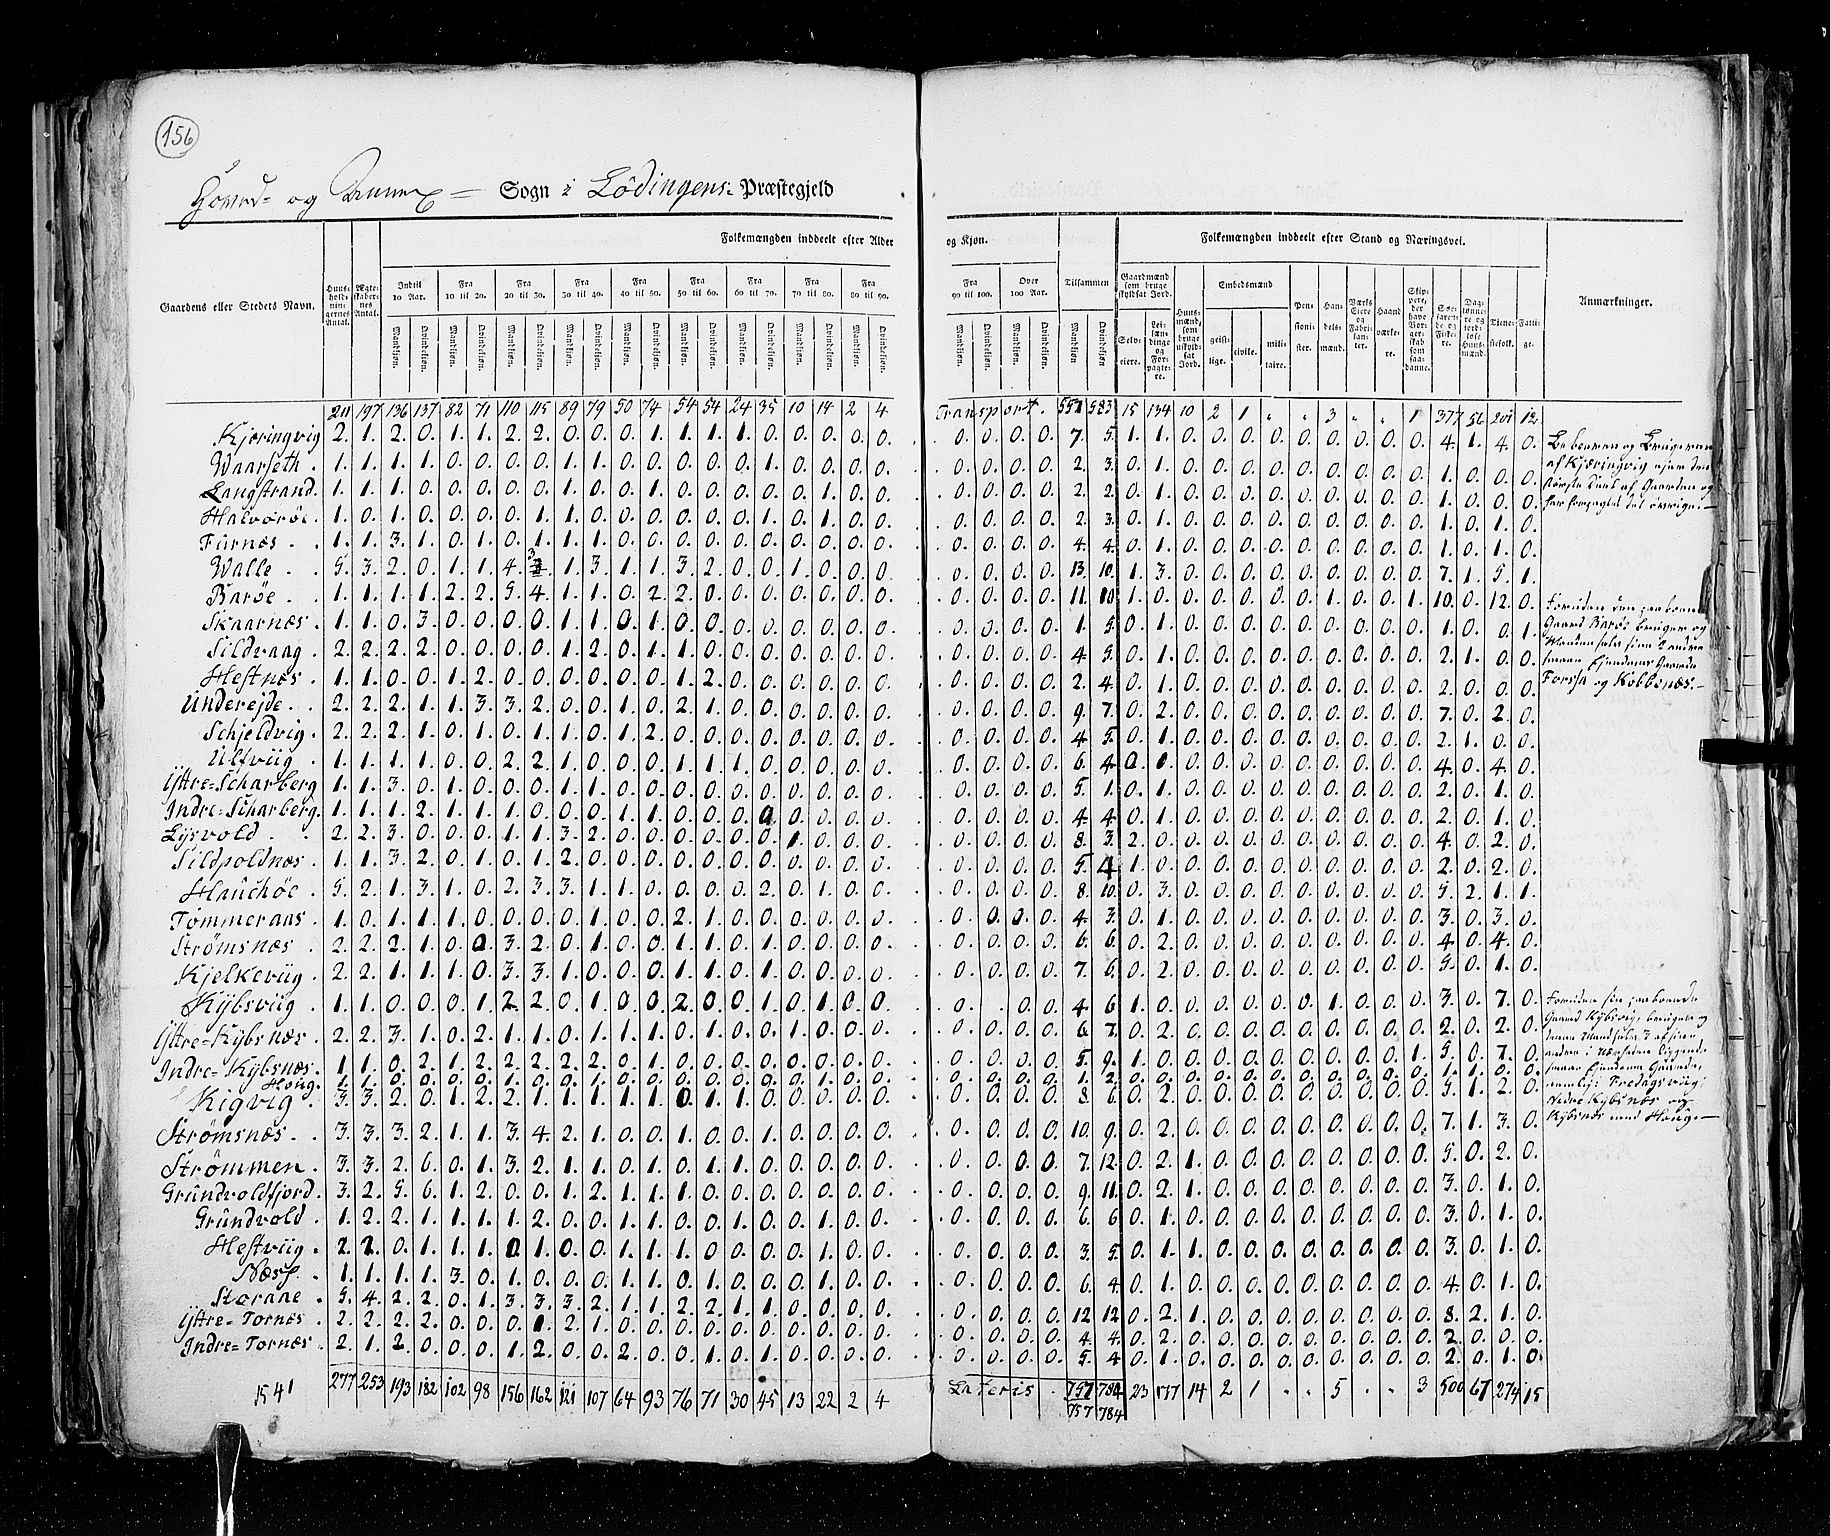 156
og Sogn i Lödingens Præstegjeld
Gaardens eller Stedets Navn.
Huusholdningernes Antal.
Ægteskabernes Antal.
Folkemængden inddeelt efter Alder og Kjøn.
Indtil 10 Aar. Fra 10 til 20. Fra 20 til 30. Fra 30 til 40. Fra 40 til 50. Fra 50 til 60. Fra 60 til 70. Fra 70 til 80. Fra 80 til 90. Fra 90 til 100. Over 100 Aar. Tilsammen
Mandkjøn. Qvindekjøn.
Folkemængden inddeelt efter Stand og Næringsvei.
Gaardmænd som bruge skyldsat Jord.
Selveiere. Leilændinge og Forpagtere.
Huusmænd, som bruge uskyldsat Jord.
Embedsmænd
geistlige. civile. militaire.
Pensionister.
Handelsmænd.
Værks Eiere og Fabrikanter.
Haandværkere.
Skippere, der have Borgerskab som saadanne.
Søefarende og Fiskere.
Daglønnere og jordløse Huusmænd.
Tjenestefolk.
Fattige.
Anmærkninger.
211 197 136 137 82 71 110 115 89 79 50 74 54 54 24 35 10 14 2 4 Transport. 557 583 15 134 10 2 1 " " 3 " " 1 377 56 201 12
Kjæringvig 2. 1. 2. 0. 1. 1. 2. 2. 0. 0. 0. 1. 1. 1. 1. 0. 0. 0. 0. 0. 0. 0. 0. 0. 7. 5. 1. 1. 0. 0. 0. 0. 0. 0. 0. 0. 0. 4. 1. 4. 0.
Waarseth. 1. 1. 1. 1. 0. 0. 0. 0. 1. 1. 0. 0. 0. 0. 0. 1. 0. 0. 0. 0. 0. 0. 0. 0. 2. 3. 0. 1. 0. 0. 0. 0. 0. 0. 0. 0. 0. 1. 0. 0. 0.
Langstrand. 1. 1. 1. 0. 0. 0. 0. 0. 1. 0. 0. 1. 0. 0. 0. 0. 0. 1. 0. 0. 0. 0. 0. 0. 2. 2. 0. 1. 0. 0. 0. 0. 0. 0. 0. 0. 0. 1. 0. 0. 0.
Halvorøe. 1. 0. 1. 0. 0. 0. 0. 1. 1. 0. 0. 0. 0. 0. 0. 1. 0. 1. 0. 0. 0. 0. 0. 0. 2. 3. 0. 1. 0. 0. 0. 0. 0. 0. 0. 0. 0. 1. 0. 1. 0.
Furnæs. 1. 1. 3. 1. 0. 1. 0. 1. 1. 1. 0. 0. 0. 0. 0. 0. 0. 0. 0. 0. 0. 0. 0. 0. 4. 4. 0. 1. 0. 0. 0. 0. 0. 0. 0. 0. 0. 1. 0. 1. 0.
Walle. 5. 3. 2. 0. 1. 1. 4. 3. 1. 3. 1. 1. 3. 2. 0. 0. 1. 0. 0. 0. 0. 0. 0. 0. 13. 10. 1. 3. 0. 0. 0. 0. 0. 0. 0. 0. 0. 7. 1. 5. 1.
Barøe. 1. 1. 1. 1. 2. 2. 5. 4. 1. 1. 0. 2. 2. 0. 0. 0. 0. 0. 0. 0. 0. 0. 0. 0. 11. 10. 1. 0. 0. 0. 0. 0. 0. 1. 0. 0. 1. 10. 0. 12. 0.
Skaarnæs. 1. 1. 0. 3. 0. 0. 0. 0. 1. 1. 0. 1. 0. 0. 0. 0. 0. 0. 0. 0. 0. 0. 0. 0. 1. 5. 0. 1. 0. 0. 0. 0. 0. 0. 0. 0. 0. 1. 0. 0. 1.
Sildvaag. 2. 2. 2. 2. 0. 0. 0. 0. 1. 2. 0. 1. 1. 0. 0. 0. 0. 0. 0. 0. 0. 0. 0. 0. 4. 5. 0. 1. 0. 0. 0. 0. 0. 0. 0. 0. 0. 2. 1. 0. 0.
Hestnæs. 1. 1. 0. 0. 1. 2. 0. 0. 0. 0. 0. 0. 1. 2. 0. 0. 0. 0. 0. 0. 0. 0. 0. 0. 2. 4. 0. 1. 0. 0. 0. 0. 0. 0. 0. 0. 0. 2. 0. 0. 0.
Underejde. 2. 2. 2. 1. 1. 3. 3. 2. 0. 0. 1. 0. 2. 1. 0. 0. 0. 0. 0. 0. 0. 0. 0. 0. 9. 7. 0. 2. 0. 0. 0. 0. 0. 0. 0. 0. 0. 7. 0. 2. 0.
Schjeldvig. 2. 2. 2. 1. 0. 1. 0. 1. 1. 0. 1. 2. 0. 0. 0. 0. 0. 0. 0. 0. 0. 0. 0. 0. 4. 5. 0. 1. 0. 0. 0. 0. 0. 0. 0. 0. 0. 2. 1. 0. 0.
Ulfviig. 1. 1. 1. 1. 0. 0. 2. 2. 1. 0. 0. 0. 1. 1. 1. 0. 0. 0. 0. 0. 0. 0. 0. 0. 6. 4. 0. 0. 0. 0. 0. 0. 0. 0. 0. 0. 0. 4. 0. 4. 0.
Ÿttre=Scharberg 1. 1. 3. 0. 1. 0. 0. 1. 1. 0. 0. 0. 0. 0. 0. 0. 0. 0. 0. 0. 0. 0. 0. 0. 5. 1. 0. 1. 0. 0. 0. 0. 0. 0. 0. 0. 0. 2. 0. 1. 0.
Indre=Scharberg. 1. 1. 1. 2. 1. 1. 1. 0. 0. 0. 1. 1. 0. 0. 0. 0. 0. 0. 0. 0. 0. 0. 0. 0. 4. 4. 0. 1. 0. 0. 0. 0. 0. 0. 0. 0. 0. 2. 0. 1. 0.
Lÿsvold. 2. 2. 3. 0. 0. 0. 1. 1. 3. 2. 0. 0. 0. 0. 0. 0. 1. 0. 0. 0. 0. 0. 0. 0. 8. 3. 2. 0. 0. 0. 0. 0. 0. 0. 0. 0. 0. 4. 0. 2. 0.
Sildpoldnæs. 1. 1. 3. 2. 0. 1. 0. 1. 2. 0. 0. 0. 0. 0. 0. 0. 0. 0. 0. 0. 0. 0. 0. 0. 5. 4. 1. 0. 0. 0. 0. 0. 0. 0. 0. 0. 0. 2. 0. 2. 0.
Hauchöe. 5. 2. 1. 3. 1. 0. 2. 3. 3. 1. 1. 0. 0. 0. 0. 2. 0. 1. 0. 0. 0. 0. 0. 0. 8. 10. 0. 3. 0. 0. 0. 0. 0. 0. 0. 0. 0. 5. 2. 1. 1.
Tommeraas. 1. 0. 1. 1. 1. 0. 0. 0. 0. 1. 0. 0. 2. 1. 0. 0. 0. 0. 0. 0. 0. 0. 0. 0. 4. 3. 0. 1. 0. 0. 0. 0. 0. 0. 0. 0. 0. 3. 0. 3. 0.
Strømsnæs. 2. 2. 2. 1. 0. 0. 3. 2. 0. 1. 0. 0. 1. 1. 0. 1. 0. 0. 0. 0. 0. 0. 0. 0. 6. 6. 0. 2. 0. 0. 0. 0. 0. 0. 0. 0. 0. 4. 0. 4. 0.
Kjelkeviig. 2. 2. 1. 1. 1. 0. 3. 3. 1. 0. 0. 0. 1. 1. 0. 1. 0. 0. 0. 0. 0. 0. 0. 0. 7. 6. 0. 2. 0. 0. 0. 0. 0. 0. 0. 0. 0. 5. 0. 1. 0.
Kÿbsviig. 1. 1. 0. 0. 0. 1. 2. 2. 0. 1. 0. 0. 2. 0. 0. 1. 0. 1. 0. 0. 0. . 0. 0. 4. 6. 1. 0. 0. 0. 0. 0. 0. 1. 0. 0. 0. 3. 0. 7. 0.
Ÿttre=Kÿbsnæs. 2. 2. 3. 1. 0. 2. 1. 1. 0. 1. 1. 1. 0. 1. 0. 0. 1. 0. 0. 0. 0. 0. 0. 0. 6. 7. 0. 2. 0. 0. 0. 0. 0. 0. 0. 0. 0. 2. 0. 2. 0.
Indre=Kÿbsnæs. 1. 1. 0. 2. 1. 2. 2. 2. 2. 2. 0. 1. 0. 0. 0. 0. 0. 0. 0. 0. 0. 0. 0. 0. 5. 9. 1. 0. 0. 0. 0. 0. 0. 0. 0. 0. 1. 5. 0. 7. 0.
Houg. 1. 1. 0. 0. 0. 0. 0. 1. 0. 0. 0. 0. 0. 0. 0. 0. 0. 1. 0. 0. 0. 0. 0. 0. 1. 2. 0. 0. 0. 0. 0. 0. 0. 0. 0. 0. 0. 1. 1. 0. 0.
Kigvig. 3. 3. 2. 0. 1. 2. 2. 1. 1. 1. 1. 1. 0. 1. 1. 0. 0. 0. 0. 0. 0. 0. 0. 0. 8. 6. 0. 2. 0. 0. 0. 0. 0. 0. 0. 0. 0. 5. 1. 2. 0.
Strømsnæs. 3. 3. 3. 2. 1. 1. 3. 4. 2. 1. 0. 0. 1. 0. 0. 1. 0. 0. 0. 0. 0. 0. 0. 0. 10. 9. 0. 2. 0. 0. 0. 0. 0. 0. 0. 0. 0. 7. 1. 3. 0.
Strømmen. 3. 3. 2. 6. 0. 1. 3. 2. 1. 1. 0. 1. 0. 1. 1. 0. 0. 0. 0. 0. 0. 0. 0. 0. 7. 12. 0. 2. 1. 0. 0. 0. 0. 0. 0. 0. 0. 5. 0. 2. 0.
Grundvoldfjord. 3. 2. 5. 6. 1. 2. 0. 0. 1. 2. 1. 1. 1. 0. 0. 0. 0. 0. 0. 0. 0. 0. 0. 0. 9. 11. 0. 2. 1. 0. 0. 0. 0. 0. 0. 0. 0. 3. 0. 1. 0.
Grundvold. 1. 2. 2. 1. 1. 1. 1. 2. 0. 0. 1. 1. 0. 0. 1. 0. 0. 1. 0. 0. 0. 0. 0. 0. 6. 6. 0. 1. 0. 0. 0. 0. 0. 0. 0. 0. 0. 3. 0. 1. 0.
Hestviig. 2. 2. 0. 1. 1. 1. 0. 1. 0. 0. 1. 1. 1. 0. 0. 0. 0. 1. 0. 0. 0. 0. 0. 0. 3. 5. 0. 1. 1. 0. 0. 0. 0. 0. 0. 0. 0. 3. 0. 1. 0.
Næss. 1. 1. 1. 1. 3. 0. 1. 0. 0. 0. 1. 1. 0. 1. 0. 0. 0. 1. 0. 0. 0. 0. 0. 0. 6. 4. 0. 1. 0. 0. 0. 0. 0. 0. 0. 0. 0. 4. 0. 1. 0.
Storaae. 5. 4. 2. 2. 0. 1. 3. 3. 3. 2. 1. 1. 2. 2. 1. 1. 0. 0. 0. 0. 0. 0. 0. 0. 12 12. 0. 2. 1. 0. 0. 0. 0. 0. 0. 0. 0. 8. 2. 1. 0.
Ÿttre=Tornæs. 2. 2. 2. 2. 0. 0. 0. 1. 2. 1. 0. 0. 0. 0. 0. 0. 0. 0. 0. 0. 0. 0. 0. 0. 4. 4. 0. 2. 0. 0. 0. 0. 0. 0. 0. 0. 0. 2. 0. 0. 0.
Indre=Tornæs. 2. 1. 2. 0. 0. 0. 1. 2. 0. 0. 2. 0. 0. 1. 0. 1. 0. 0. 0. 0. 0. 0. 0. 0. 5. 4 0. 1. 0. 0. 0. 0. 0. 0. 0. 0. 0. 2. 0. 1. 0.
1541 277 253 193 182 102 98 156 162 121 107 64 93 76 71 30 45 13 22 2 4 Lateris 757 784 23 177 14 2 1 " " 5 " " 3 500 67 274 15
757 784
og Brugeren
af Kjæringvig ejer den
største Deel af Gaarden og
har forpagtet det øvrige.
Foruden den paaboende
Gaard Barøe bruger og
sine 2 andre
Forssa og Kobbenæs.
Foruden sin paaboende
Gaard Kÿbsvig, bruger og
andre i Nærheden liggende
nemlig: Fredagsviig;
Nedre Kÿbsnæs og
Kÿbsnæs med Houg.